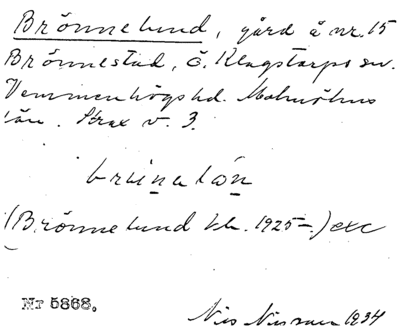 Brönnelund, gård å nr. 15
Brönnestad, Ö. Klagstorps sn.
Vemmenhögs hd. Malmöhus
län. Strax v. 3.
(Brönnelund bl. 1925–.) etc
Nr 5868.
Nils Nilsson 1934